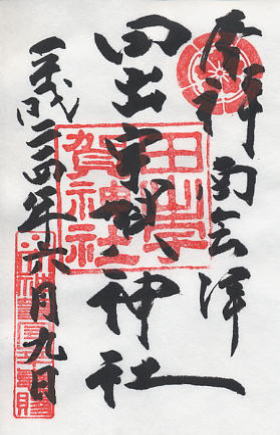 奉拝 南会津
田出宇賀神社
平成二四年六月九日
田出宇
賀神社